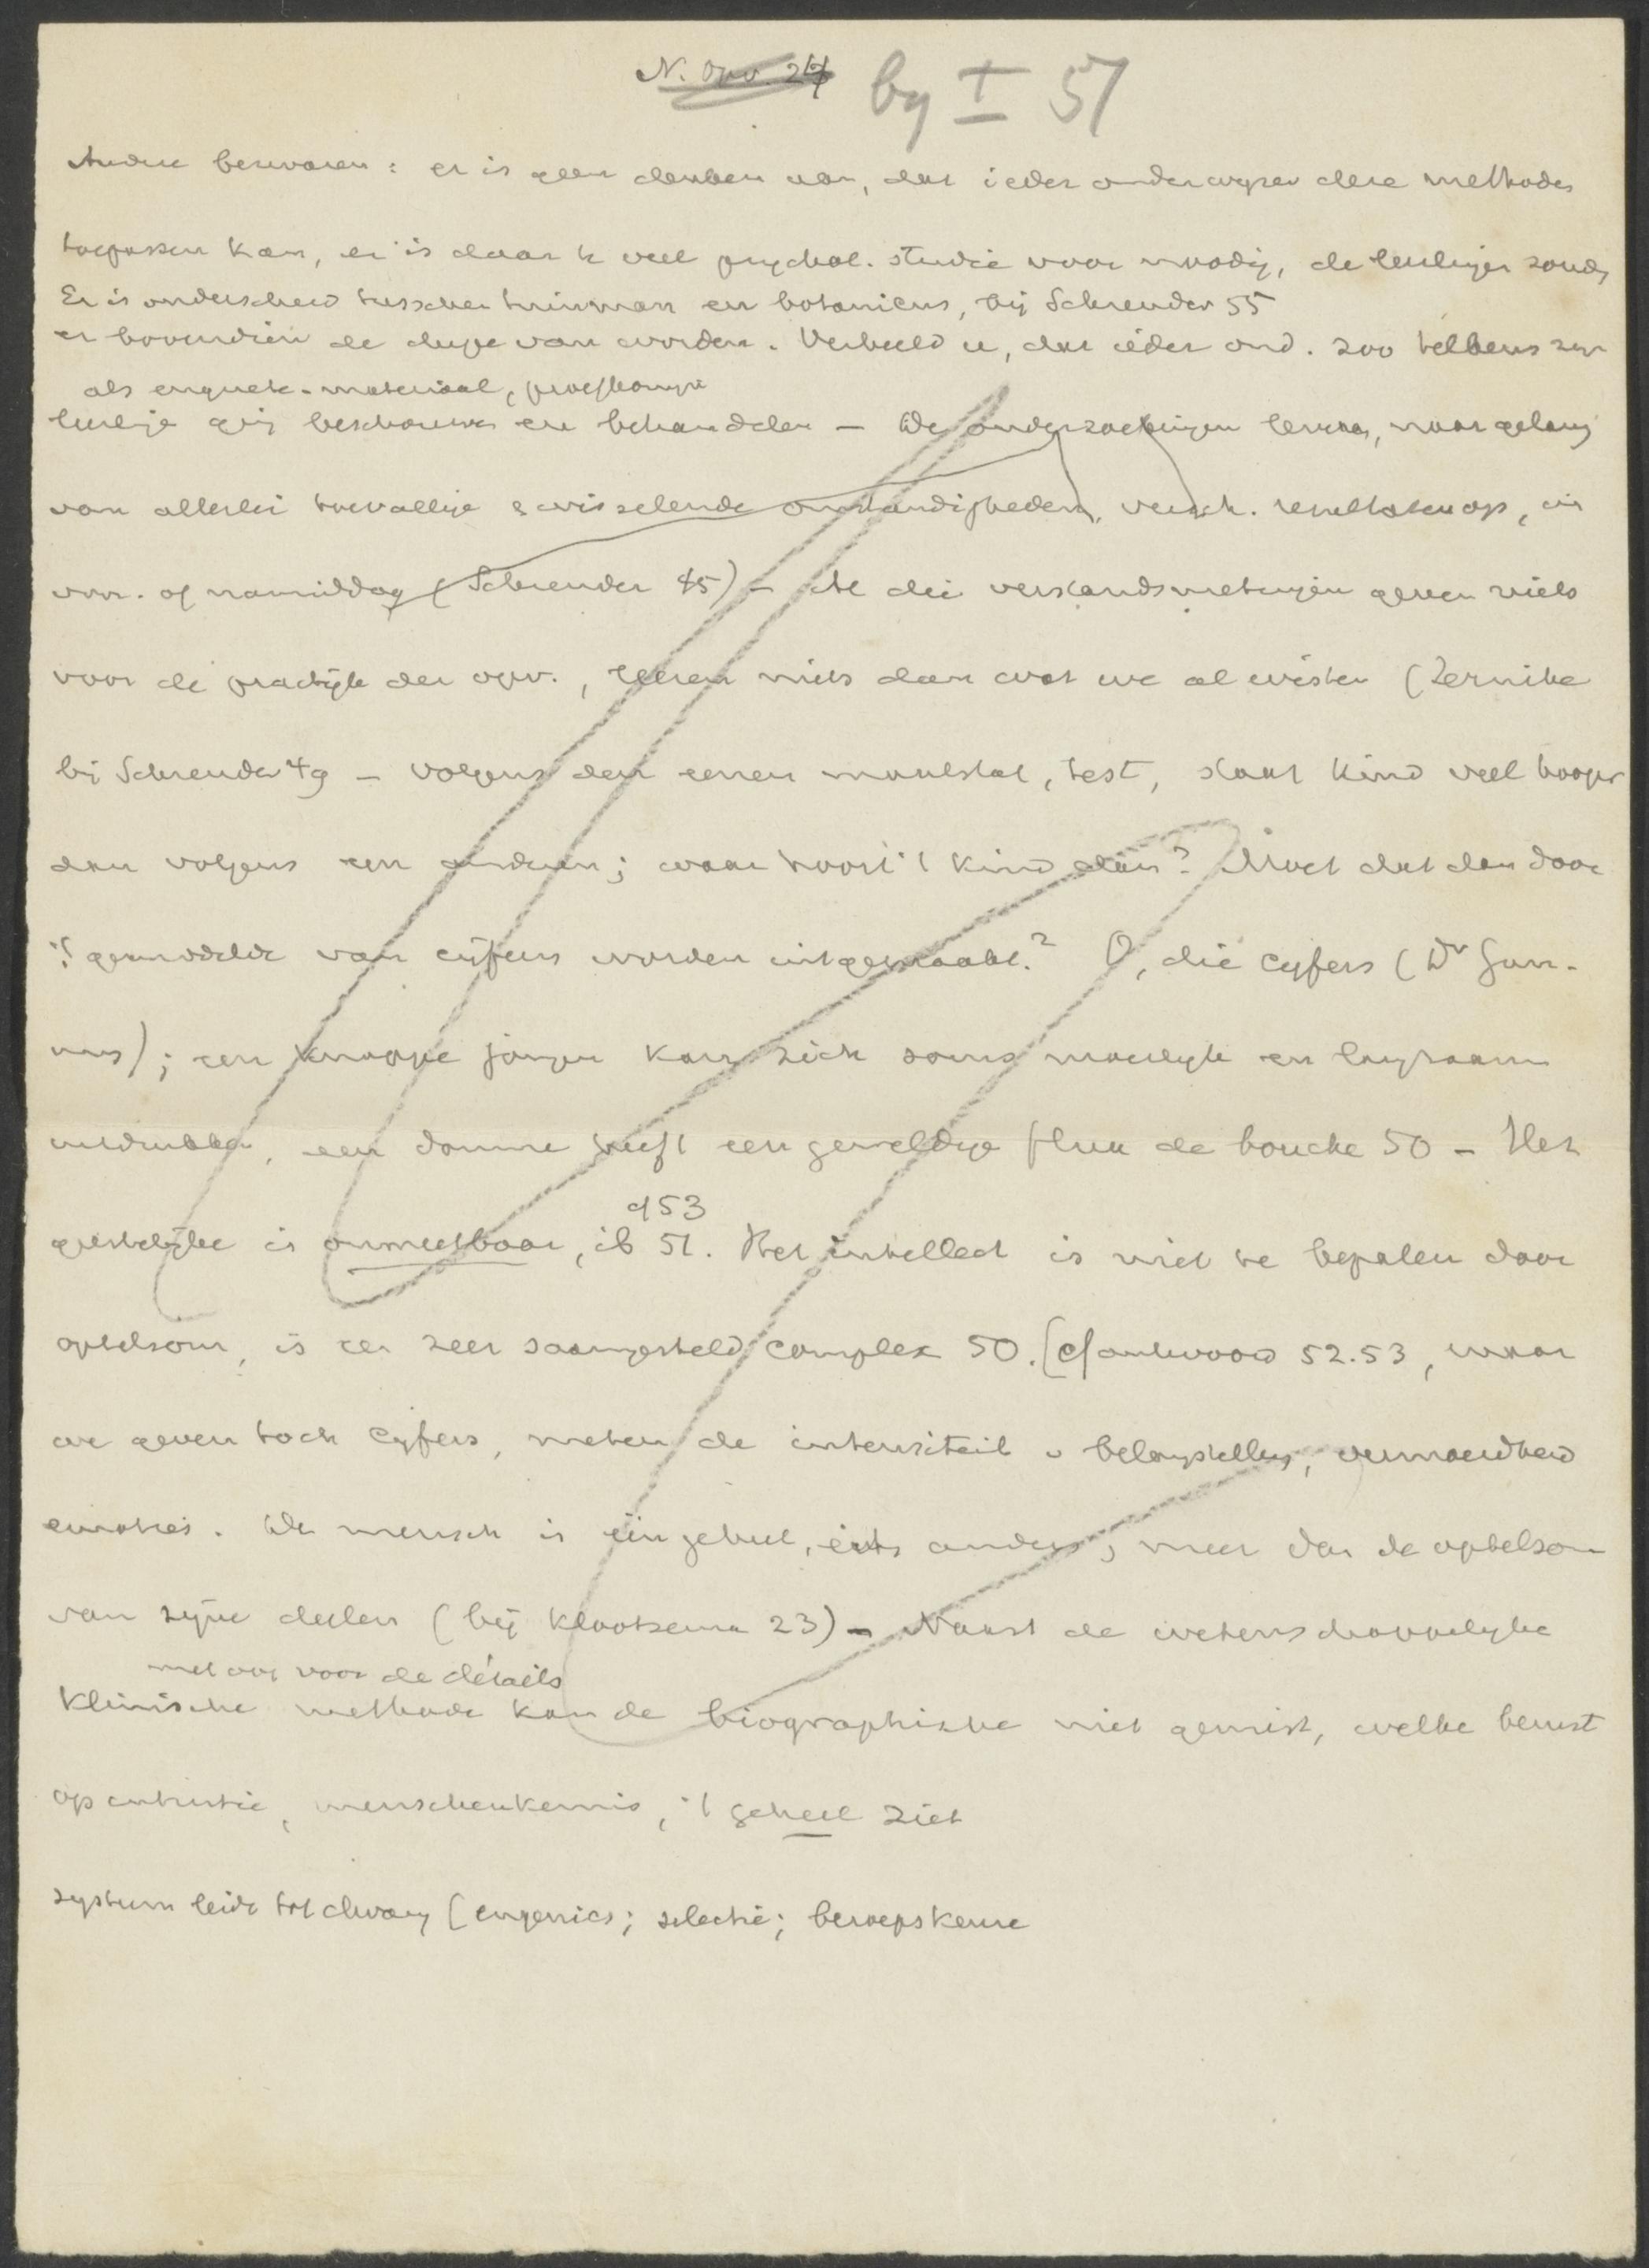 N. Opv. 27 by I 57
Andre bezwaren: er is geen denken aan, dat ieder onderwyzer deze methodes
toepassen kan, er is daar te veel psychol. studie voor noodig, de leerlingen zoud
Er is onderscheid tusschen tuinman en botanicus, bij Schreuder 55
er bovendien de dupe van worden. Verbeeld u, dat ieder ond. zoo telkens zyn
als enquete-materiaal, proefkonyn
leerlinge ging beschouwen en behandelen – De onderzoekingen leveren, naar gelang
van allerlei toevallige & wisselende omstandigheden, versch. resultaten op, in
voor- of namiddag (Schreuder 45) – Al die verstandsmetingen geven niets
voor de practijk der opv., leeren niets dan wat we al wisten (Zernike
bij Schreuder 49 – Volgens den eenen maatstaf, test, staat kind veel hooger
dan volgens een anderen; waar hoort 't kind dan? Moet dat dan door
't gemiddelde van cijfers worden uitgemaakt? O, die cyfers (Dr Gun-
ning); een knappe jongen kan zich soms moeilyk en langzaam
uitdrukken, een domme heeft een geweldige flux de bouche 50 – Het
geestelijke is onmeetbaar, ib 51. Het intellect is niet te bepalen door
cf 53
optelsom, is een zeer saamgesteld complex 50. [cf antwoord 52.53, maar
we geven toch cyfers, meten de intensiteit v belangstelling, vermoeidheid
emoties. De mensch is één geheel, iets anders, meer dan de optelsom
van zijne deelen (bij Klootsema 23) – Naast de wetenschappelyke
met oog voor de détails
klinische methode kan de biographische niet gemist, welke berust
op intuitie, menschenkennis, 't geheel ziet
systeem leidt tot dwang (eugenics; selectie; beroepskeuze